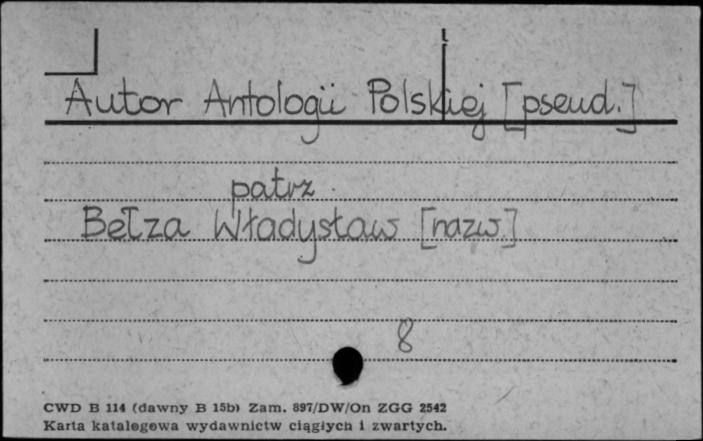 Autor Antologii Polskiej [pseud.]
patrz
Bełza Władysław [nazw.]
8
CWD B 114 (dawny B 15b) Zam. 897/DW/On ZGG 2542
Karta katalogowa wydawnictw ciągłych i zwartych.